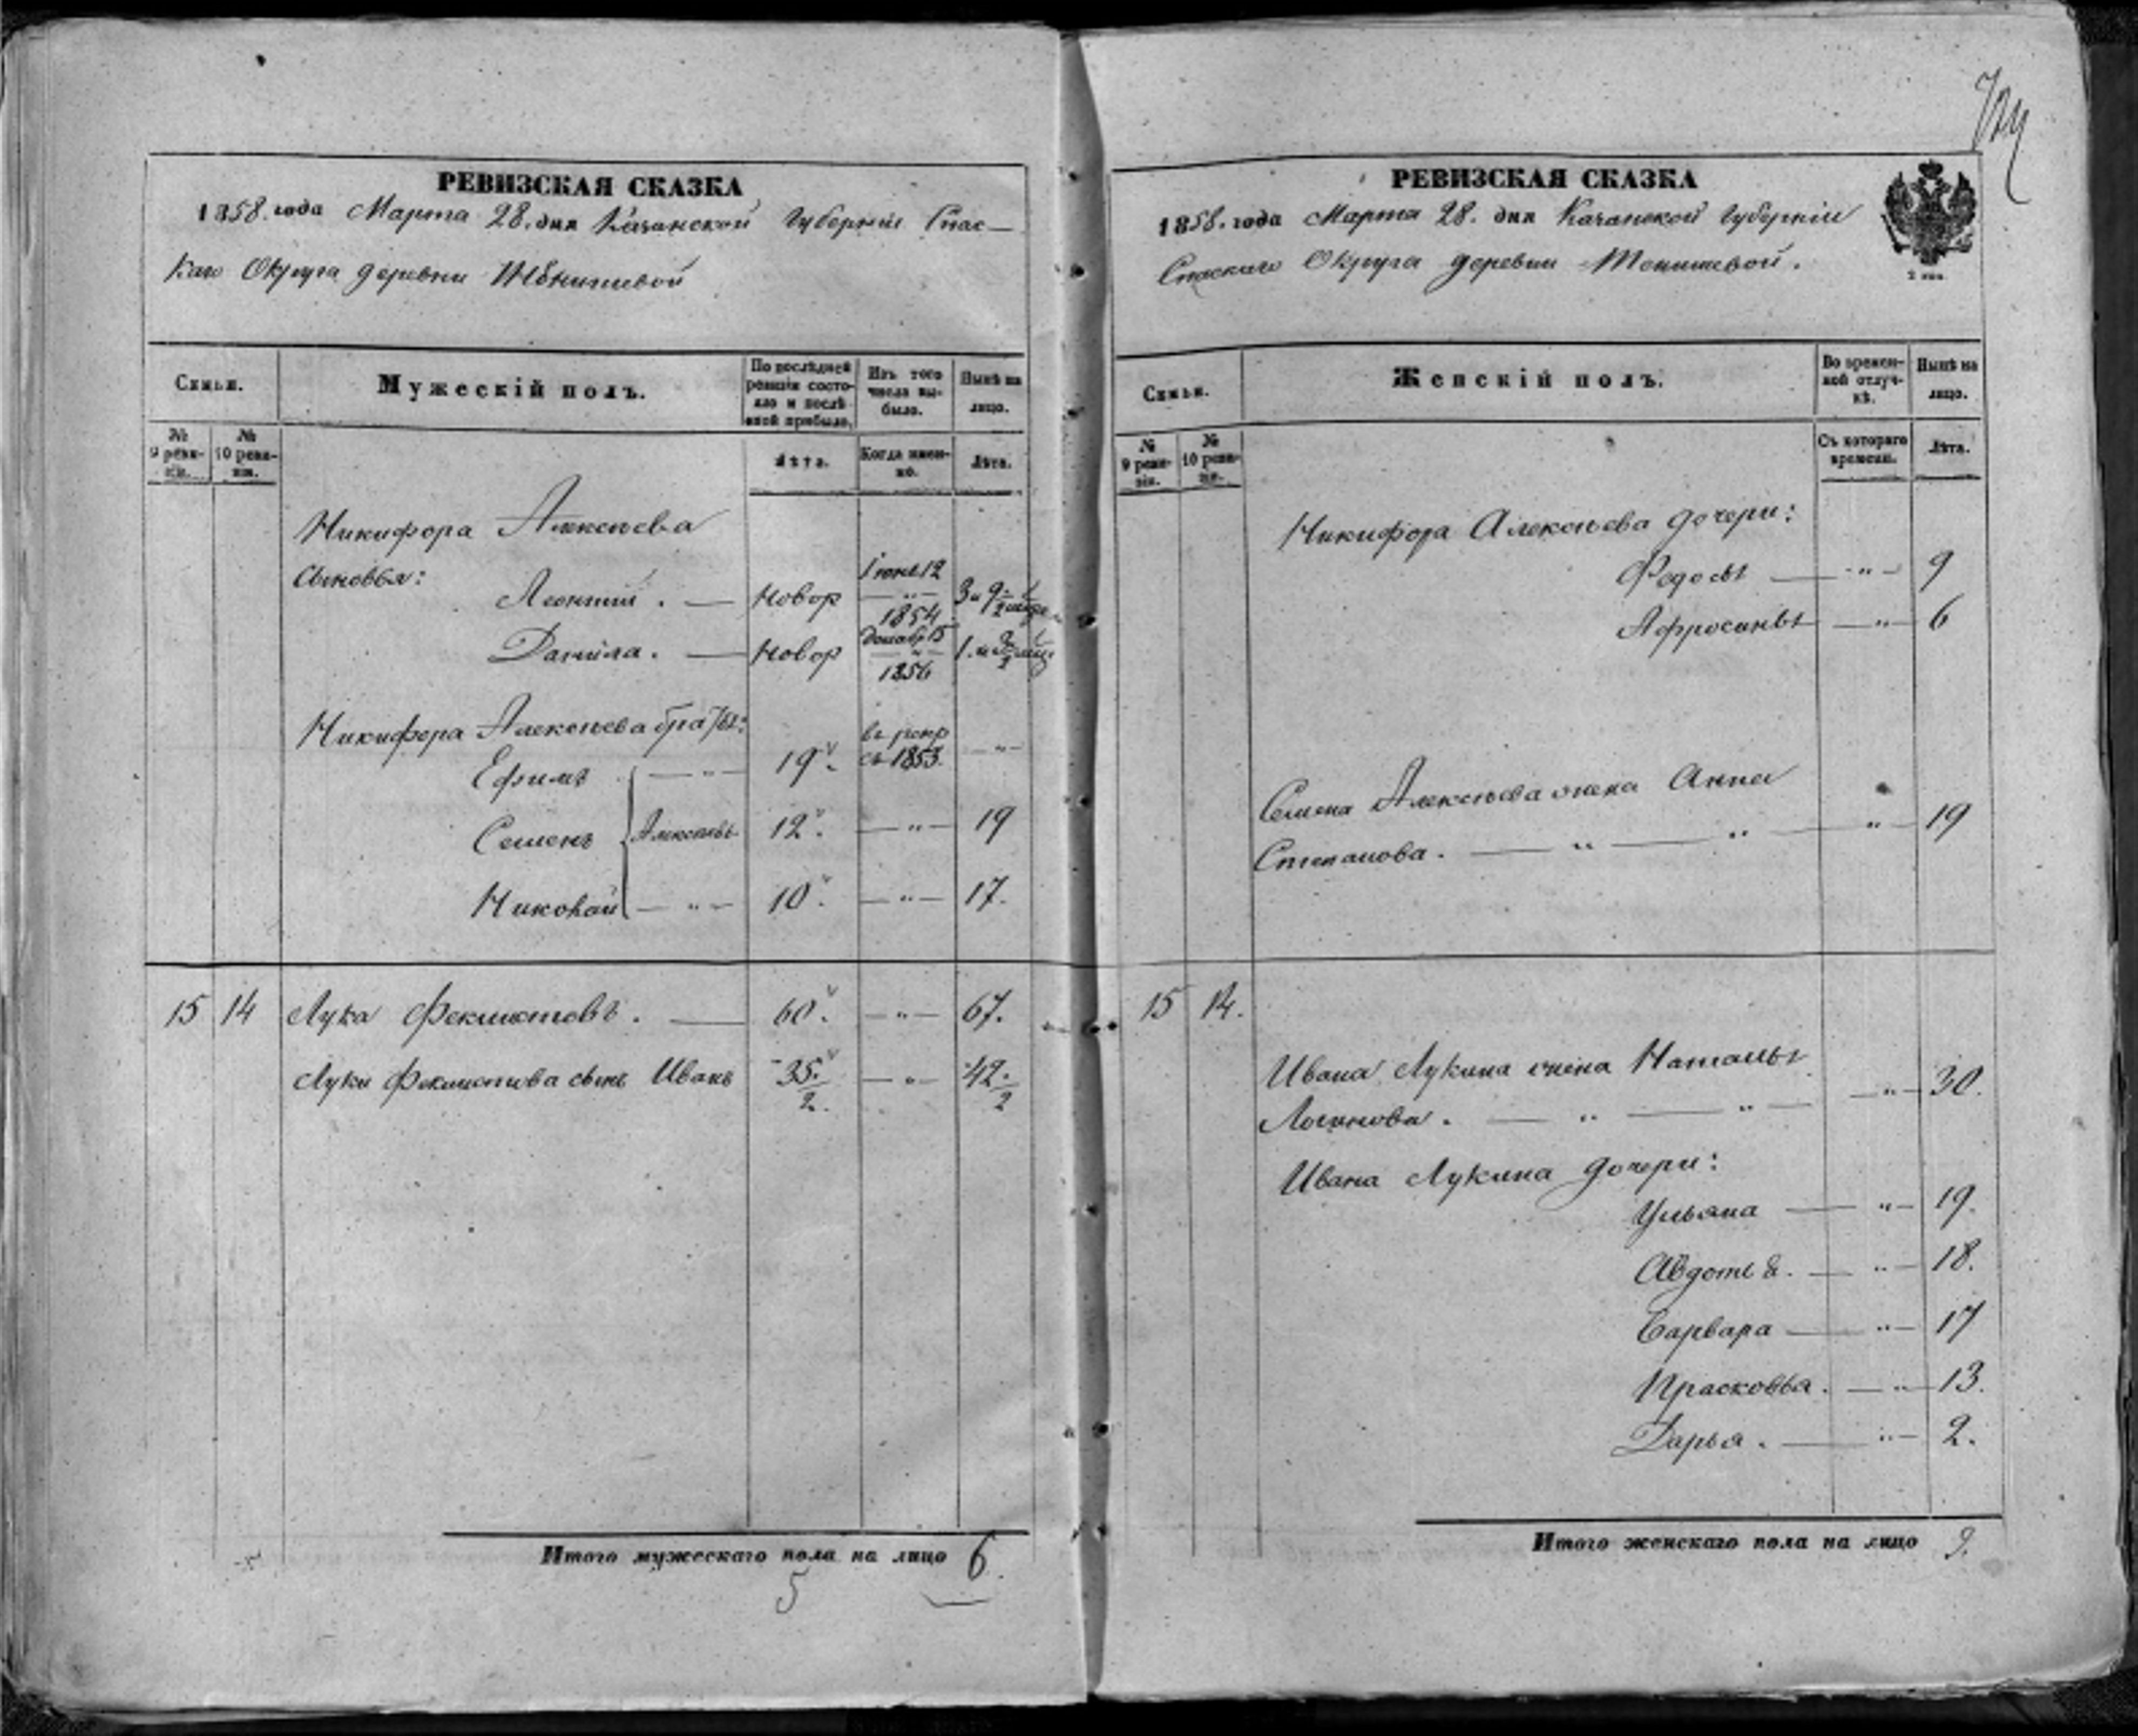 РЕВИЗСКАЯ СКАЗКА
1858. года Марта 28. дня Казанской Губернiи Спас-
каго Округа деревни
Семьи.
Мужескiй полъ.
По послѣдней ревизiи состояло и послѣ оной прибыло.
Изъ того числа выбыло.
Нынѣ на лицо.
№ 9 ревизiи.
№ 10 ревизiи.
Лѣта.
Когда именно.
Лѣта.
Никифора Алексѣева
сыновья:
Iюня 12
Леонтiй. — новор — " — 3 и 9
1854
Декабр 15
Данила. — новор — " — 1. и
1856
Никифора Алексѣева братья:
Ефимъ — " — 19. съ 1853. — " —
Семенъ Алексѣевы 12. — " — 19
Николай — " — 10. — " — 17.
15 14 Лука Феклистовъ. — 60. — " — 67.
Луки Феклистова сынъ Иванъ 35./2. — " — 42./2
Итого мужескаго пола на лицо 6.
5
РЕВИЗСКАЯ СКАЗКА
1858. года Марта 28. дня Казанской Губернiи
Спаскаго Округа деревни
2 коп.
Семьи.
Женскiй полъ.
Во временной отлучкѣ.
Нынѣ на лицо.
№ 9 ревизiи.
№ 10 ревизiи.
Съ котораго времени.
Лѣта.
Никифора Алексѣева дочери:
Федосья — " — 9
Афросинья — " — 6
Семена Алексѣева жена Анна
Степанова. — " — " — " — 19
15 14.
Ивана Лукина жена Наталья
Логинова. — " — " — " — 30.
Ивана Лукина дочери:
Ульяна — " — 19.
Авдотья. — " — 18.
Варвара — " — 17
Прасковья. — " — 13.
Дарья. — " — 2.
Итого женскаго пола на лицо 9.